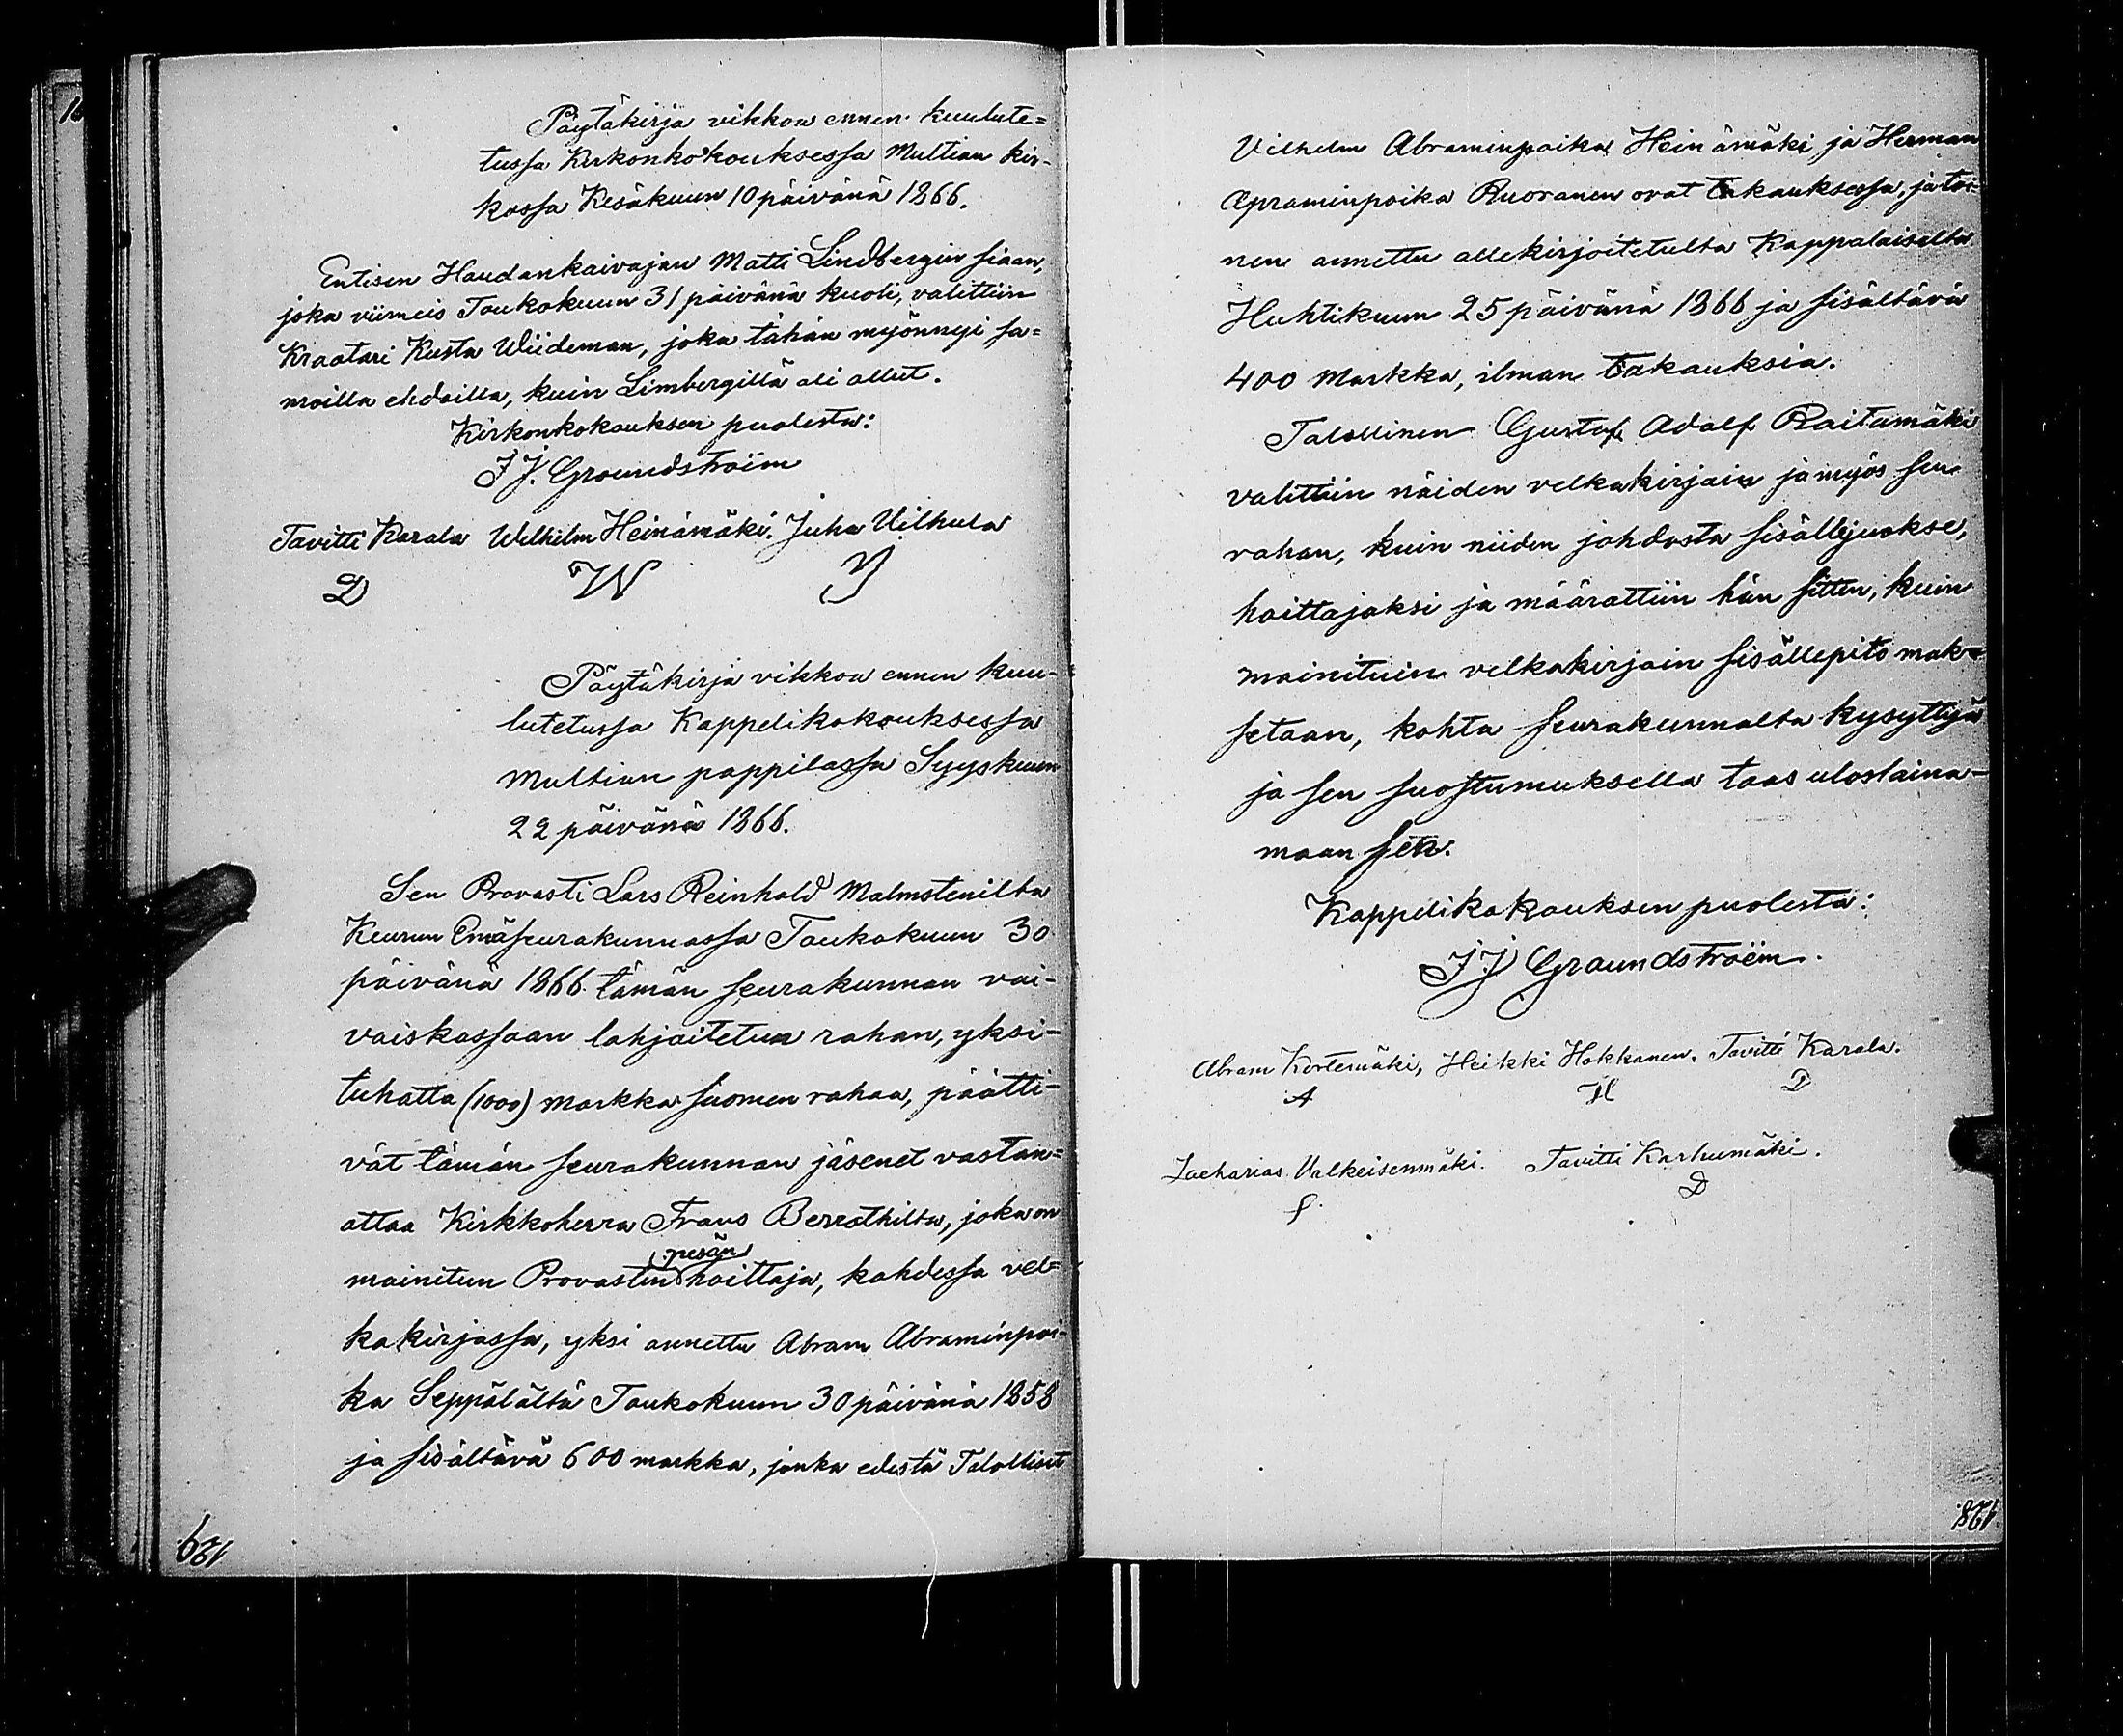 Pöytäkirja vikkoa ennen kuulute=
tussa Kirkonkokouksessa Multian kir-
kossa Kesäkuun 10 päivänä 1866.
Entisen Haudankaivajan Matti Lindbergin siaan,
joka viimeis Toukokuun 31 päivänä kuoli, valittiin
Kraatari Kusta Wiideman, joka tähän myönnyi sa=
moilla ehdoilla, kuin Limbergillä oli ollut.
Kirkonkokouksen puolesta:
J J. Groundstroëm
Tavitti Karala Wilhelm Heinämäki. Juha Vilhula
D W J
Pöytäkirja vikkoa ennen kuu-
lutetussa Kappelikokouksessa
Multian pappilassa Syyskuun
22 päivänä 1866.
Sen Provasti Lars Reinhold Malmstenilta
Keurun Emäseurakunnassa Toukokuun 30
päivänä 1866 tämän seurakunnan vai-
vaiskassaan lahjoitetun rahan, yksi-
tuhatta (1000) markka suomen rahaa, päätti-
vät tämän seurakunnan jäsenet vastan=
ottaa Kirkkoherra Frans Berrothilta, joka on
pesän
mainitun Provastin hoittaja, kahdessa vel=
kakirjassa, yksi annettu Abram Abraminpoi-
ka Seppälältä Toukokuun 30 päivänä 1858
ja sisältävä 600 markka, jonka edestä Talolliset
129
Vilhelm Abraminpoika Heinämäki ja Herman
Apraminpoika Ruoranen ovat takauksessa, ja toi-
nen annettu allekirjoitetulta Kappalaiselta
Huhtikuun 25 päivänä 1866 ja sisältävä
400 Markka, ilman takauksia.
Talollinen Gustaf Adolf Raitamäki
valittiin näiden velkakirjain ja myös sen
rahan, kuin niiden johdosta sisällejuokse,
hoittajaksi ja määrattiin hän sitten, kuin
mainituin velkakirjain sisällepito mak=
setaan, kohta seurakunnalta kysyttyä
ja sen suostumuksella taas uloslaina-
maan sen.
Kappelikokouksen puolesta:
J J Groundstroëm.
Abram Kortemäki, Heikki Hokkanen. Tavitti Karala.
A H D
Zacharias Valkeisenmäki. Tavitti Karhumäki.
D
128.